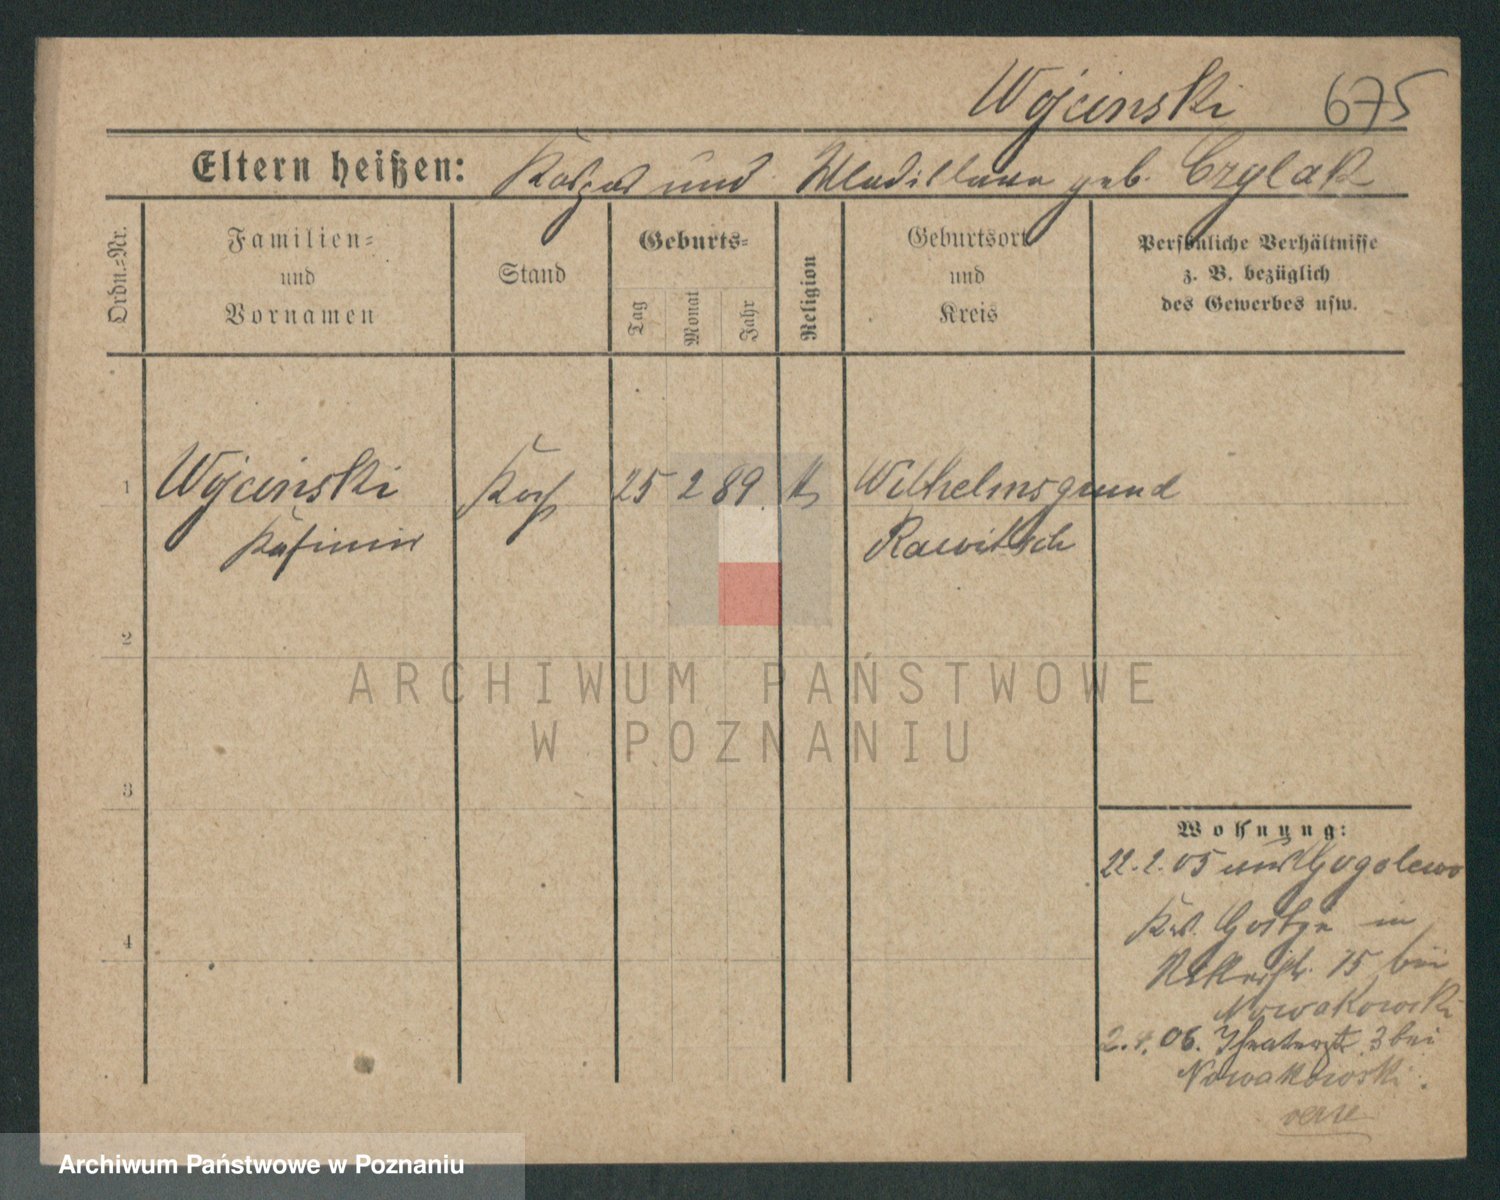 Wojcinski 675
Eltern heißen: Kasper und Wladislawa geb. Czylak
Ordn.-Nr.
Familien-
und
Vornamen
Stand
Geburts-
Tag
Monat
Jahr
Religion
Geburtsort
und
Kreis
Persönliche Verhältnisse
z. B. bezüglich
des Gewerbes usw.
1 Wojcinski Koch 25 2 89 k Wilhelmsgrund
Kasimir Rawitsch
2
3
4
Wohnung:
22.2.05 aus Gogolewo
Kr. Gostyn in
15 bei
Nowakowski
2.4.06. Theaterstr. 3 bei
Nowakowski.
ARCHIWUM PAŃSTWOWE
W POZNANIU
Archiwum Państwowe w Poznaniu